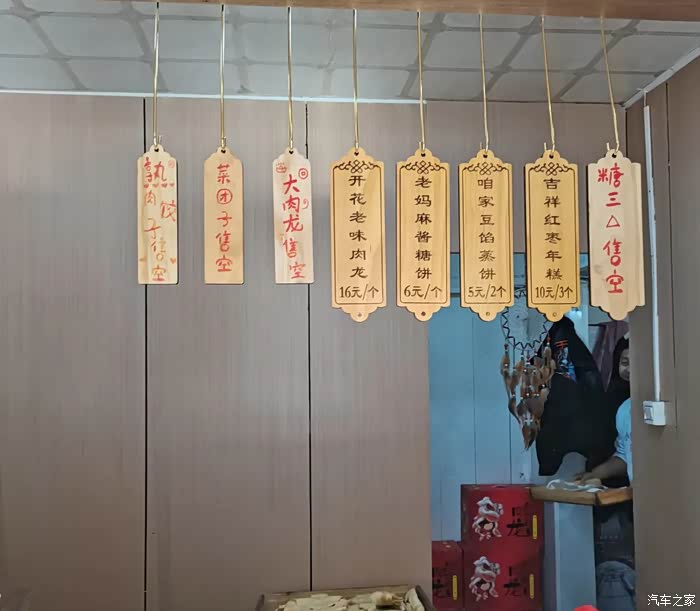 熟肉饺子售空
菜团子售空
大肉龙售空
开花老味肉龙
16元/个
老妈麻酱糖饼
6元/个
咱家豆馅蒸饼
5元/2个
吉祥红枣年糕
10元/3个
糖三△售空
龙
龙
汽车之家